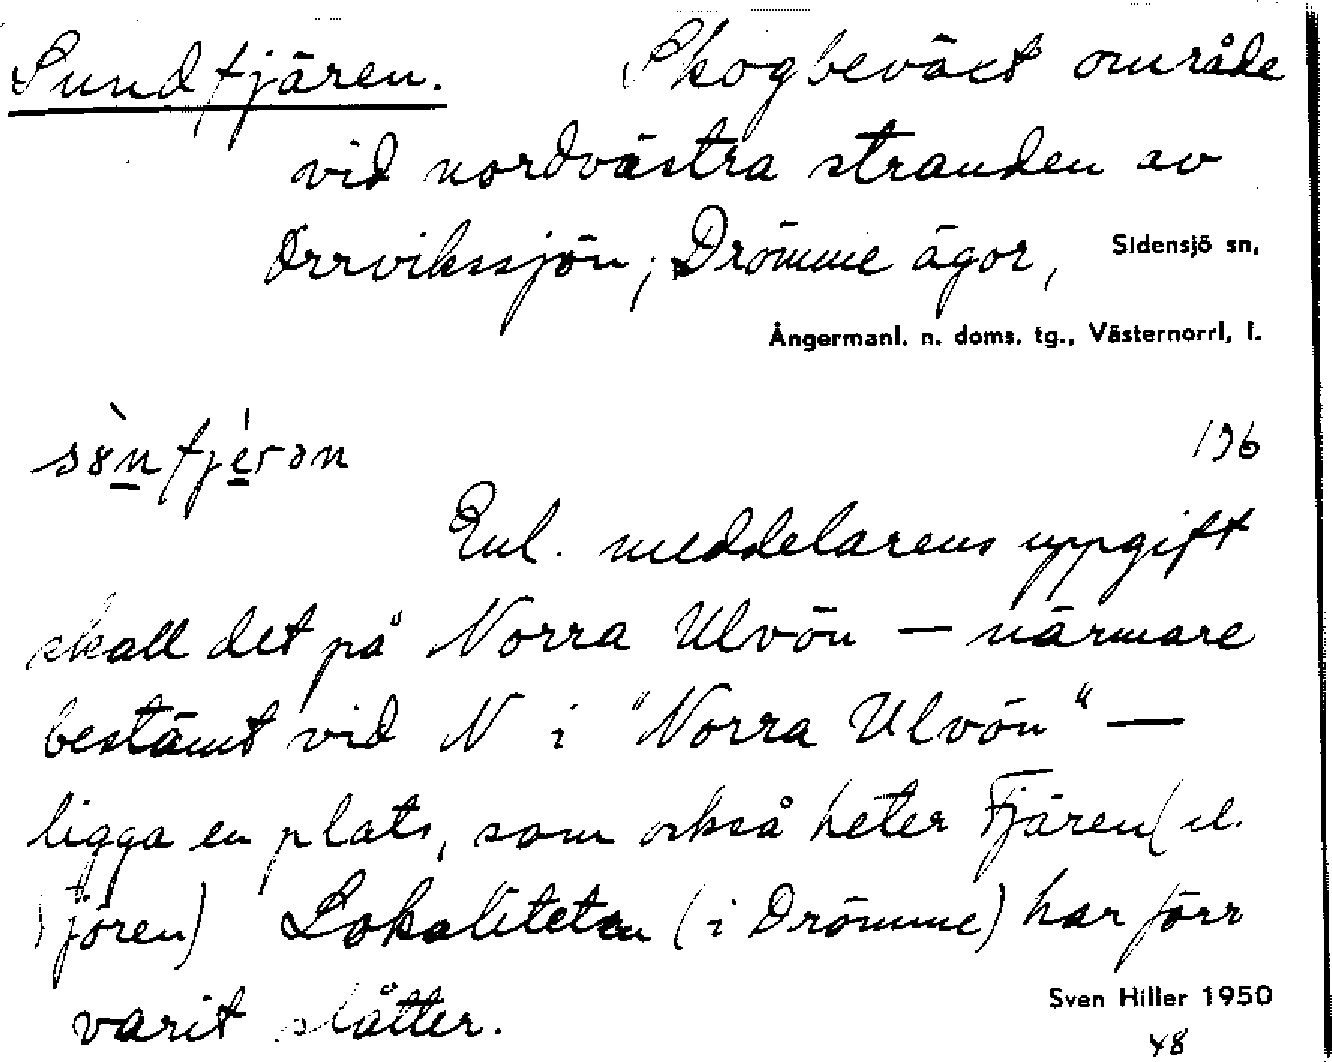 Sundfjären. Skogbeväxt område
vid nordvästra stranden av
Orrvikssjön; Drömme ägor, Sidensjö sn,
Ångermanl. n. doms. tg., Västernorrl. l.
196
Enl. meddelarens uppgift
skall det på Norra Ulvön — närmare
bestämt vid N i "Norra Ulvön" —
ligga en plats, som också heter Fjären (el.
Fjören) Lokaliteten (i Drömme) har förr
varit slåtter.
Sven Hiller 1950
48